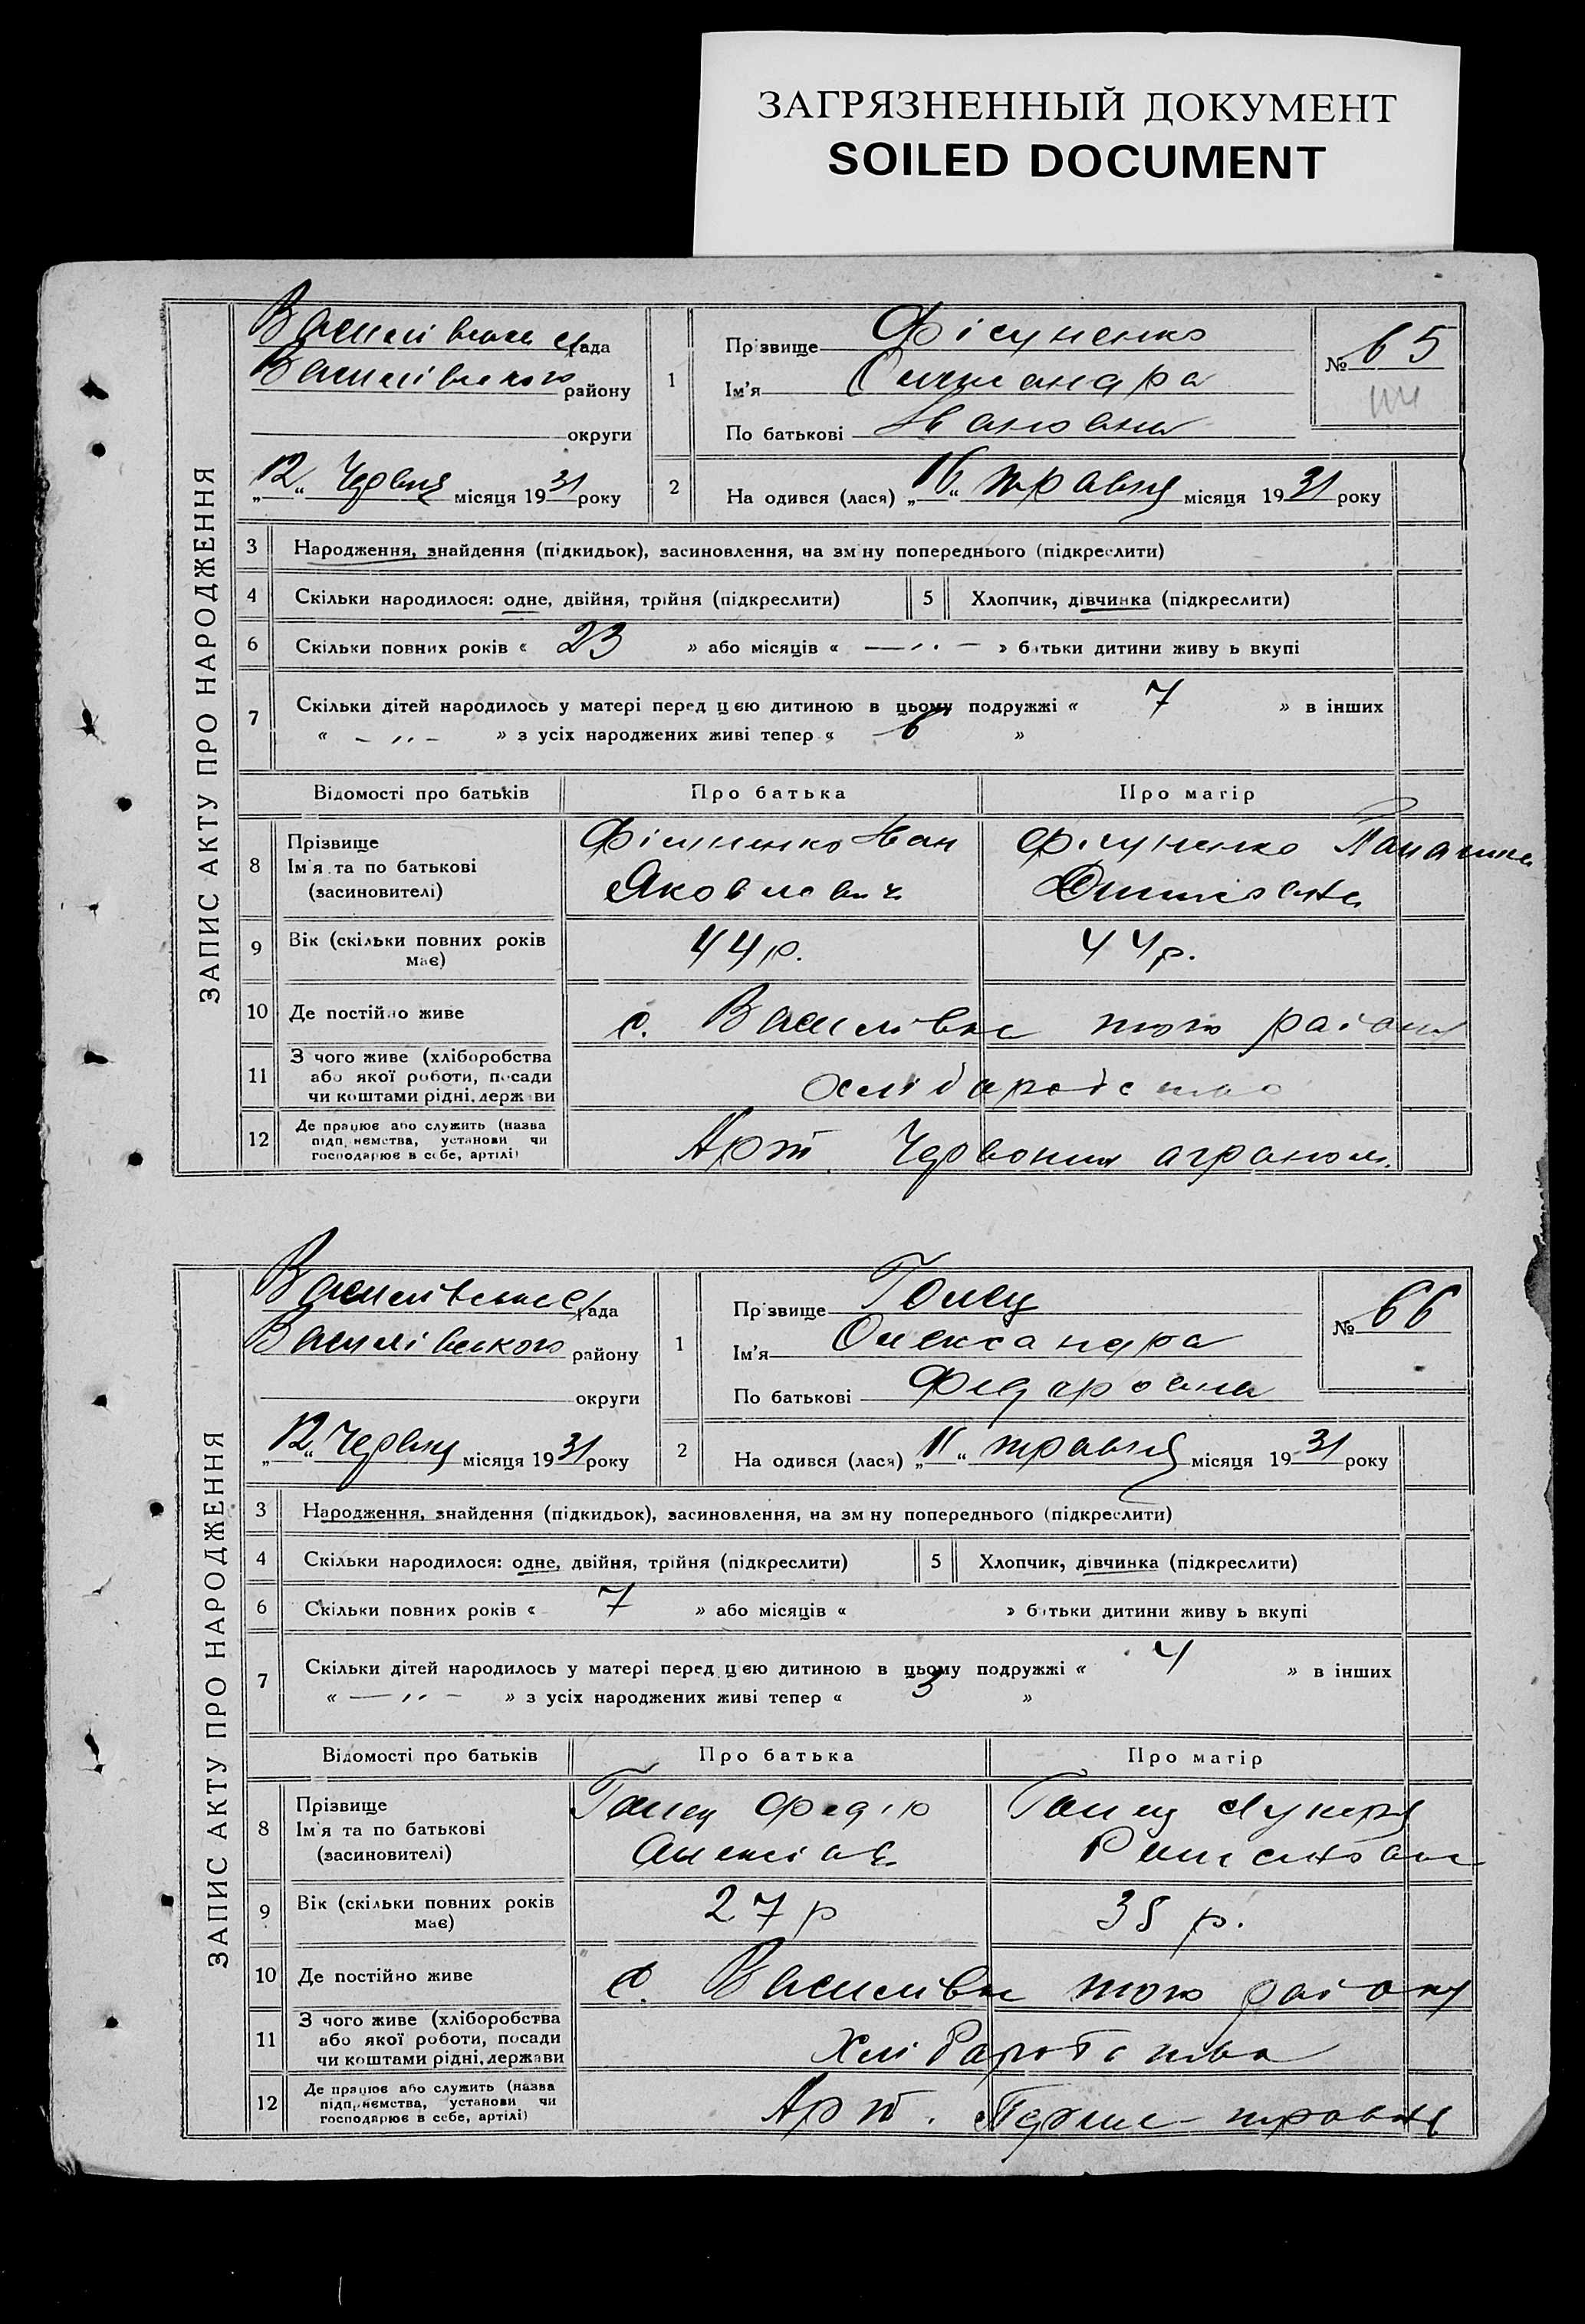 ЗАГРЯЗНЕННЫЙ ДОКУМЕНТ
SOILED DOCUMENT
ЗАПИС АКТУ ПРО НАРОДЖЕННЯ
Василівська рада
Василівського району
округи
„12“ Червня місяця 1931 року
1
Прізвище Фісуненко
Ім'я Олександра
По батькові Івановна
№ 65
2
На одився (лася) „16“ травня місяця 1931 року
3 Народження, знайдення (підкидьок), засиновлення, на зм ну попереднього (підкреслити)
4 Скільки народилося: одне, двійня, трійня (підкреслити)
5 Хлопчик, дівчинка (підкреслити)
6 Скільки повних років « 23 » або місяців « — ·· — » батьки дитини живу ь вкупі
7 Скільки дітей народилось у матері перед цею дитиною в цьому подружжі « 7 » в інших
« — ,, — » з усіх народжених живі тепер « 6 »
Відомості про батьків
Про батька
Про матір
8 Прізвище
Ім'я та по батькові
(засиновителі)
Фісуненко Іван
Яковлевич
Фісуненко
9 Вік (скільки повних років має)
44 р.
44 р.
10 Де постійно живе
с. Василівка того району
11 З чого живе (хліборобства
або якої роботи, посади
чи коштами рідні, держави
Хліборобство
12 Де працює або служить (назва
підприємства, установи чи
господарює в себе, артілі)
Арт. Червоний аграном.
ЗАПИС АКТУ ПРО НАРОДЖЕННЯ
Василівська рада
Василівського району
округи
„12“ Червня місяця 1931 року
1
Прізвище Голец
Ім'я Олександра
По батькові Федоровна
№ 66
2
На одився (лася) „11“ травня місяця 1931 року
3 Народження, знайдення (підкидьок), засиновлення, на зм ну попереднього (підкреслити)
4 Скільки народилося: одне, двійня, трійня (підкреслити)
5 Хлопчик, дівчинка (підкреслити)
6 Скільки повних років « 7 » або місяців « » батьки дитини живу ь вкупі
7 Скільки дітей народилось у матері перед цею дитиною в цьому подружжі « 4 » в інших
« — ,, — » з усіх народжених живі тепер « 3 »
Відомості про батьків
Про батька
Про матір
8 Прізвище
Ім'я та по батькові
(засиновителі)
Голец Федір
Голец Лукеря
9 Вік (скільки повних років має)
27 р
38 р.
10 Де постійно живе
с. Василівка того району
11 З чого живе (хліборобства
або якої роботи, посади
чи коштами рідні, держави
Хліборобства
12 Де працює або служить (назва
підприємства, установи чи
господарює в себе, артілі)
Арт. Перше травня